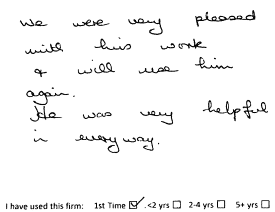 We were very pleased
with his work
& will use him
again.
He was very helpful
in every way.
I have used this firm: 1st Time ☑ <2 yrs ☐ 2-4 yrs ☐ 5+ yrs ☐